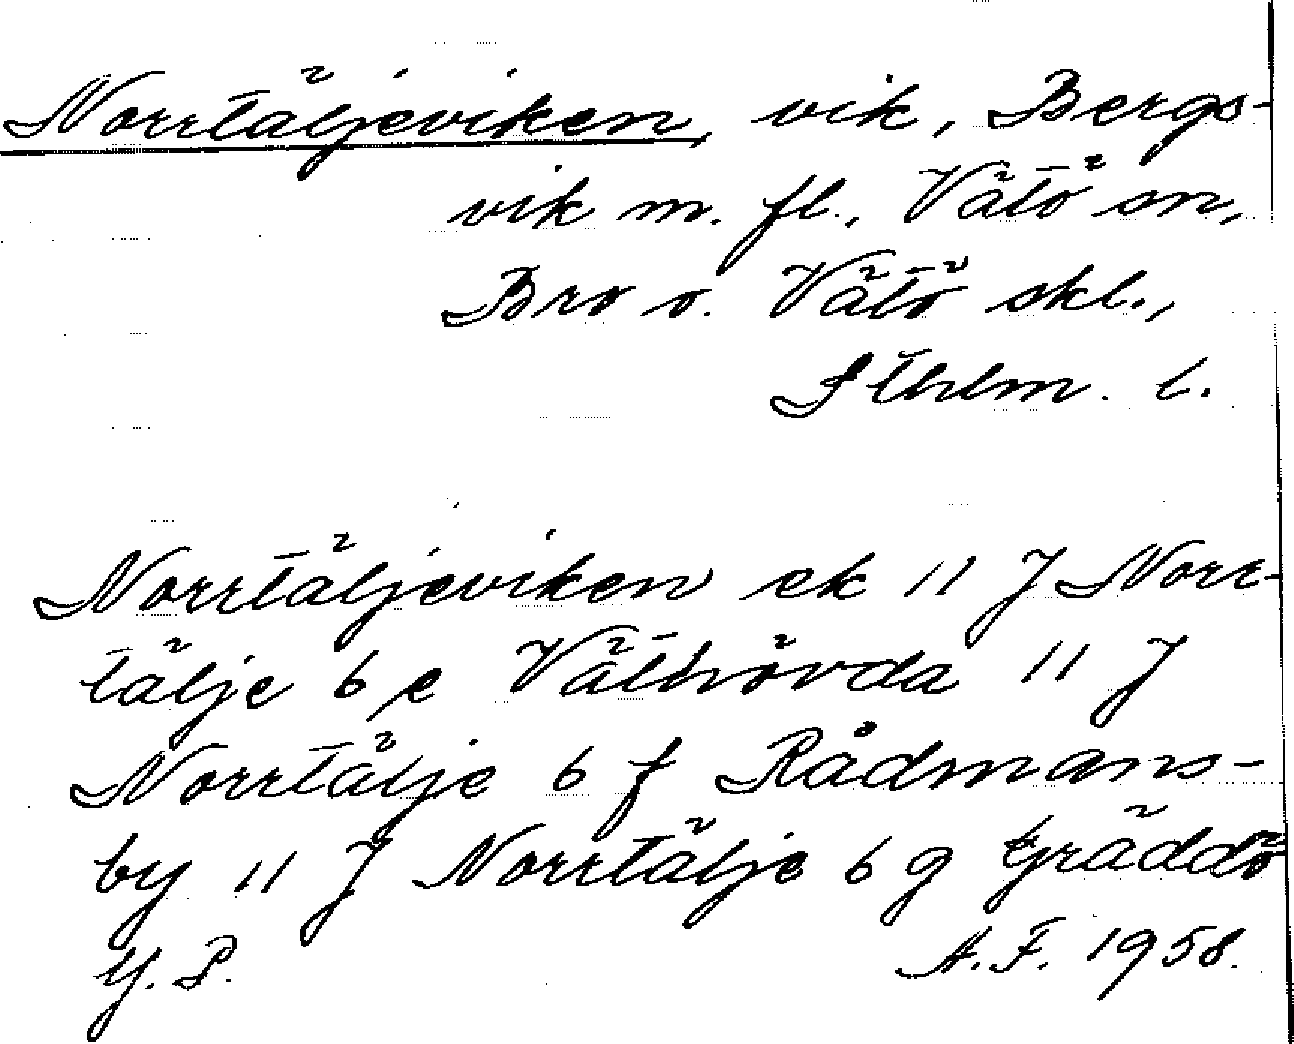 Norrtäljeviken, vik, Bergs-
vik m. fl., Vätö sn,
Bro o. Vätö skl.,
Sthlm. l.
Norrtäljeviken ek 11 J Norr-
tälje 6 e Väthövda 11 J
Norrtälje 6 f Rådmans-
by 11 J Norrtälje 6 g Gräddö
G. P. A.F. 1958.